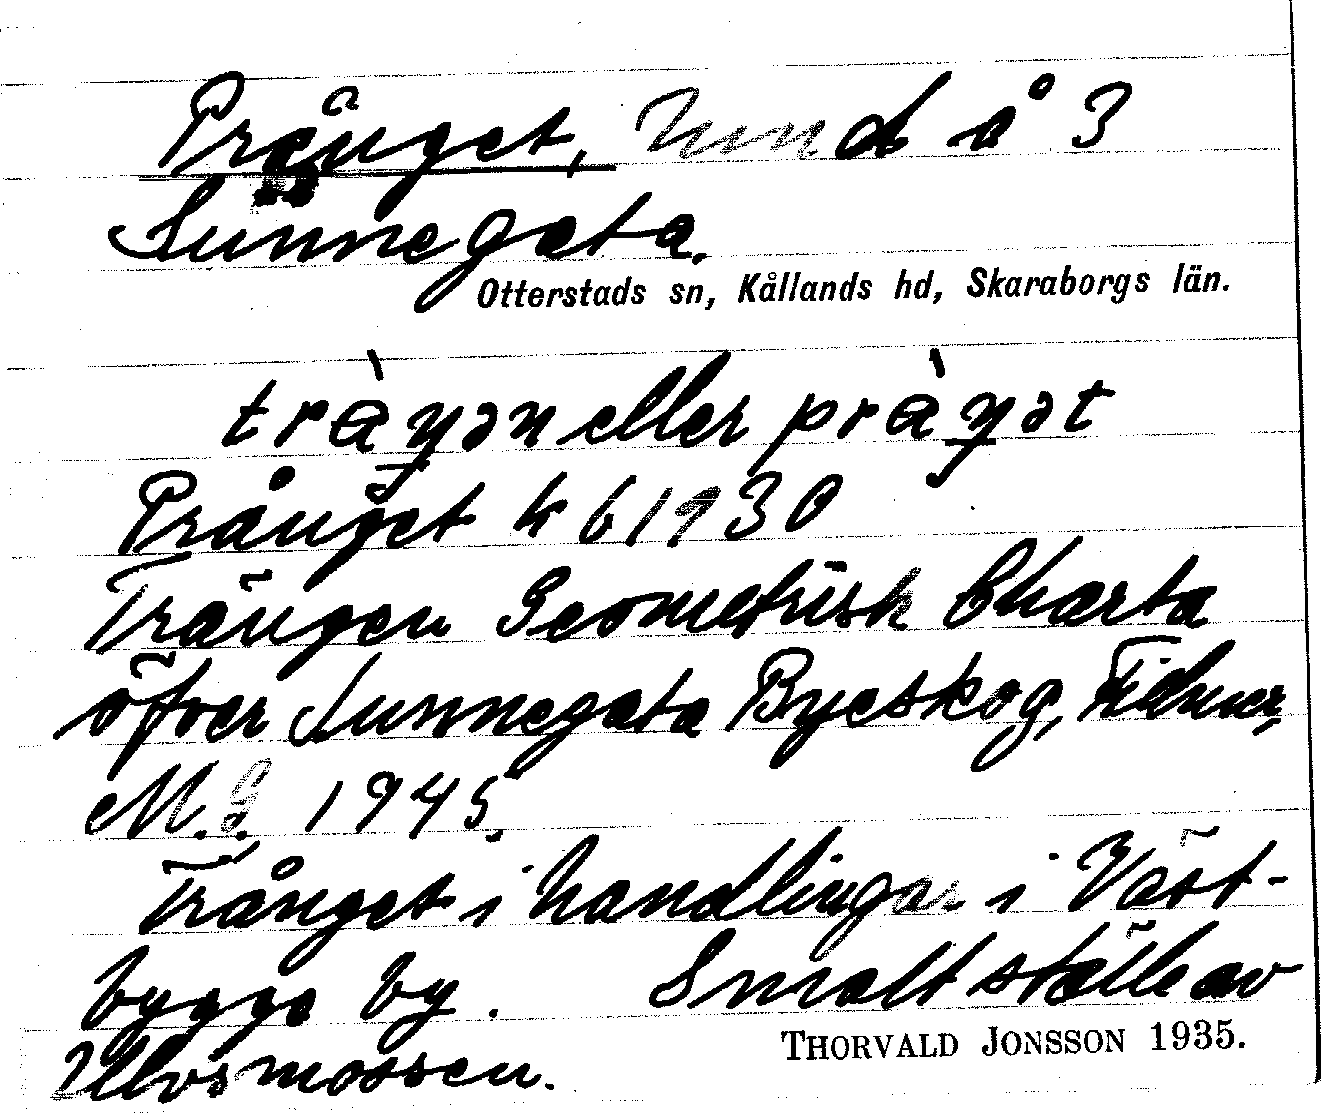 Prånget, hmd å 3
Sunnegata.
Otterstads sn, Kållands hd, Skaraborgs län.
tràŋən eller pràŋət
Prånget kb 1930
Trången Geometrisk Charta
öfver Sunnegata Byeskog,
M.G. 1945.
Trånget i handlingar i Väst-
bygge by. Smalt ställe av
Ullvsmossen.
THORVALD JONSSON 1935.